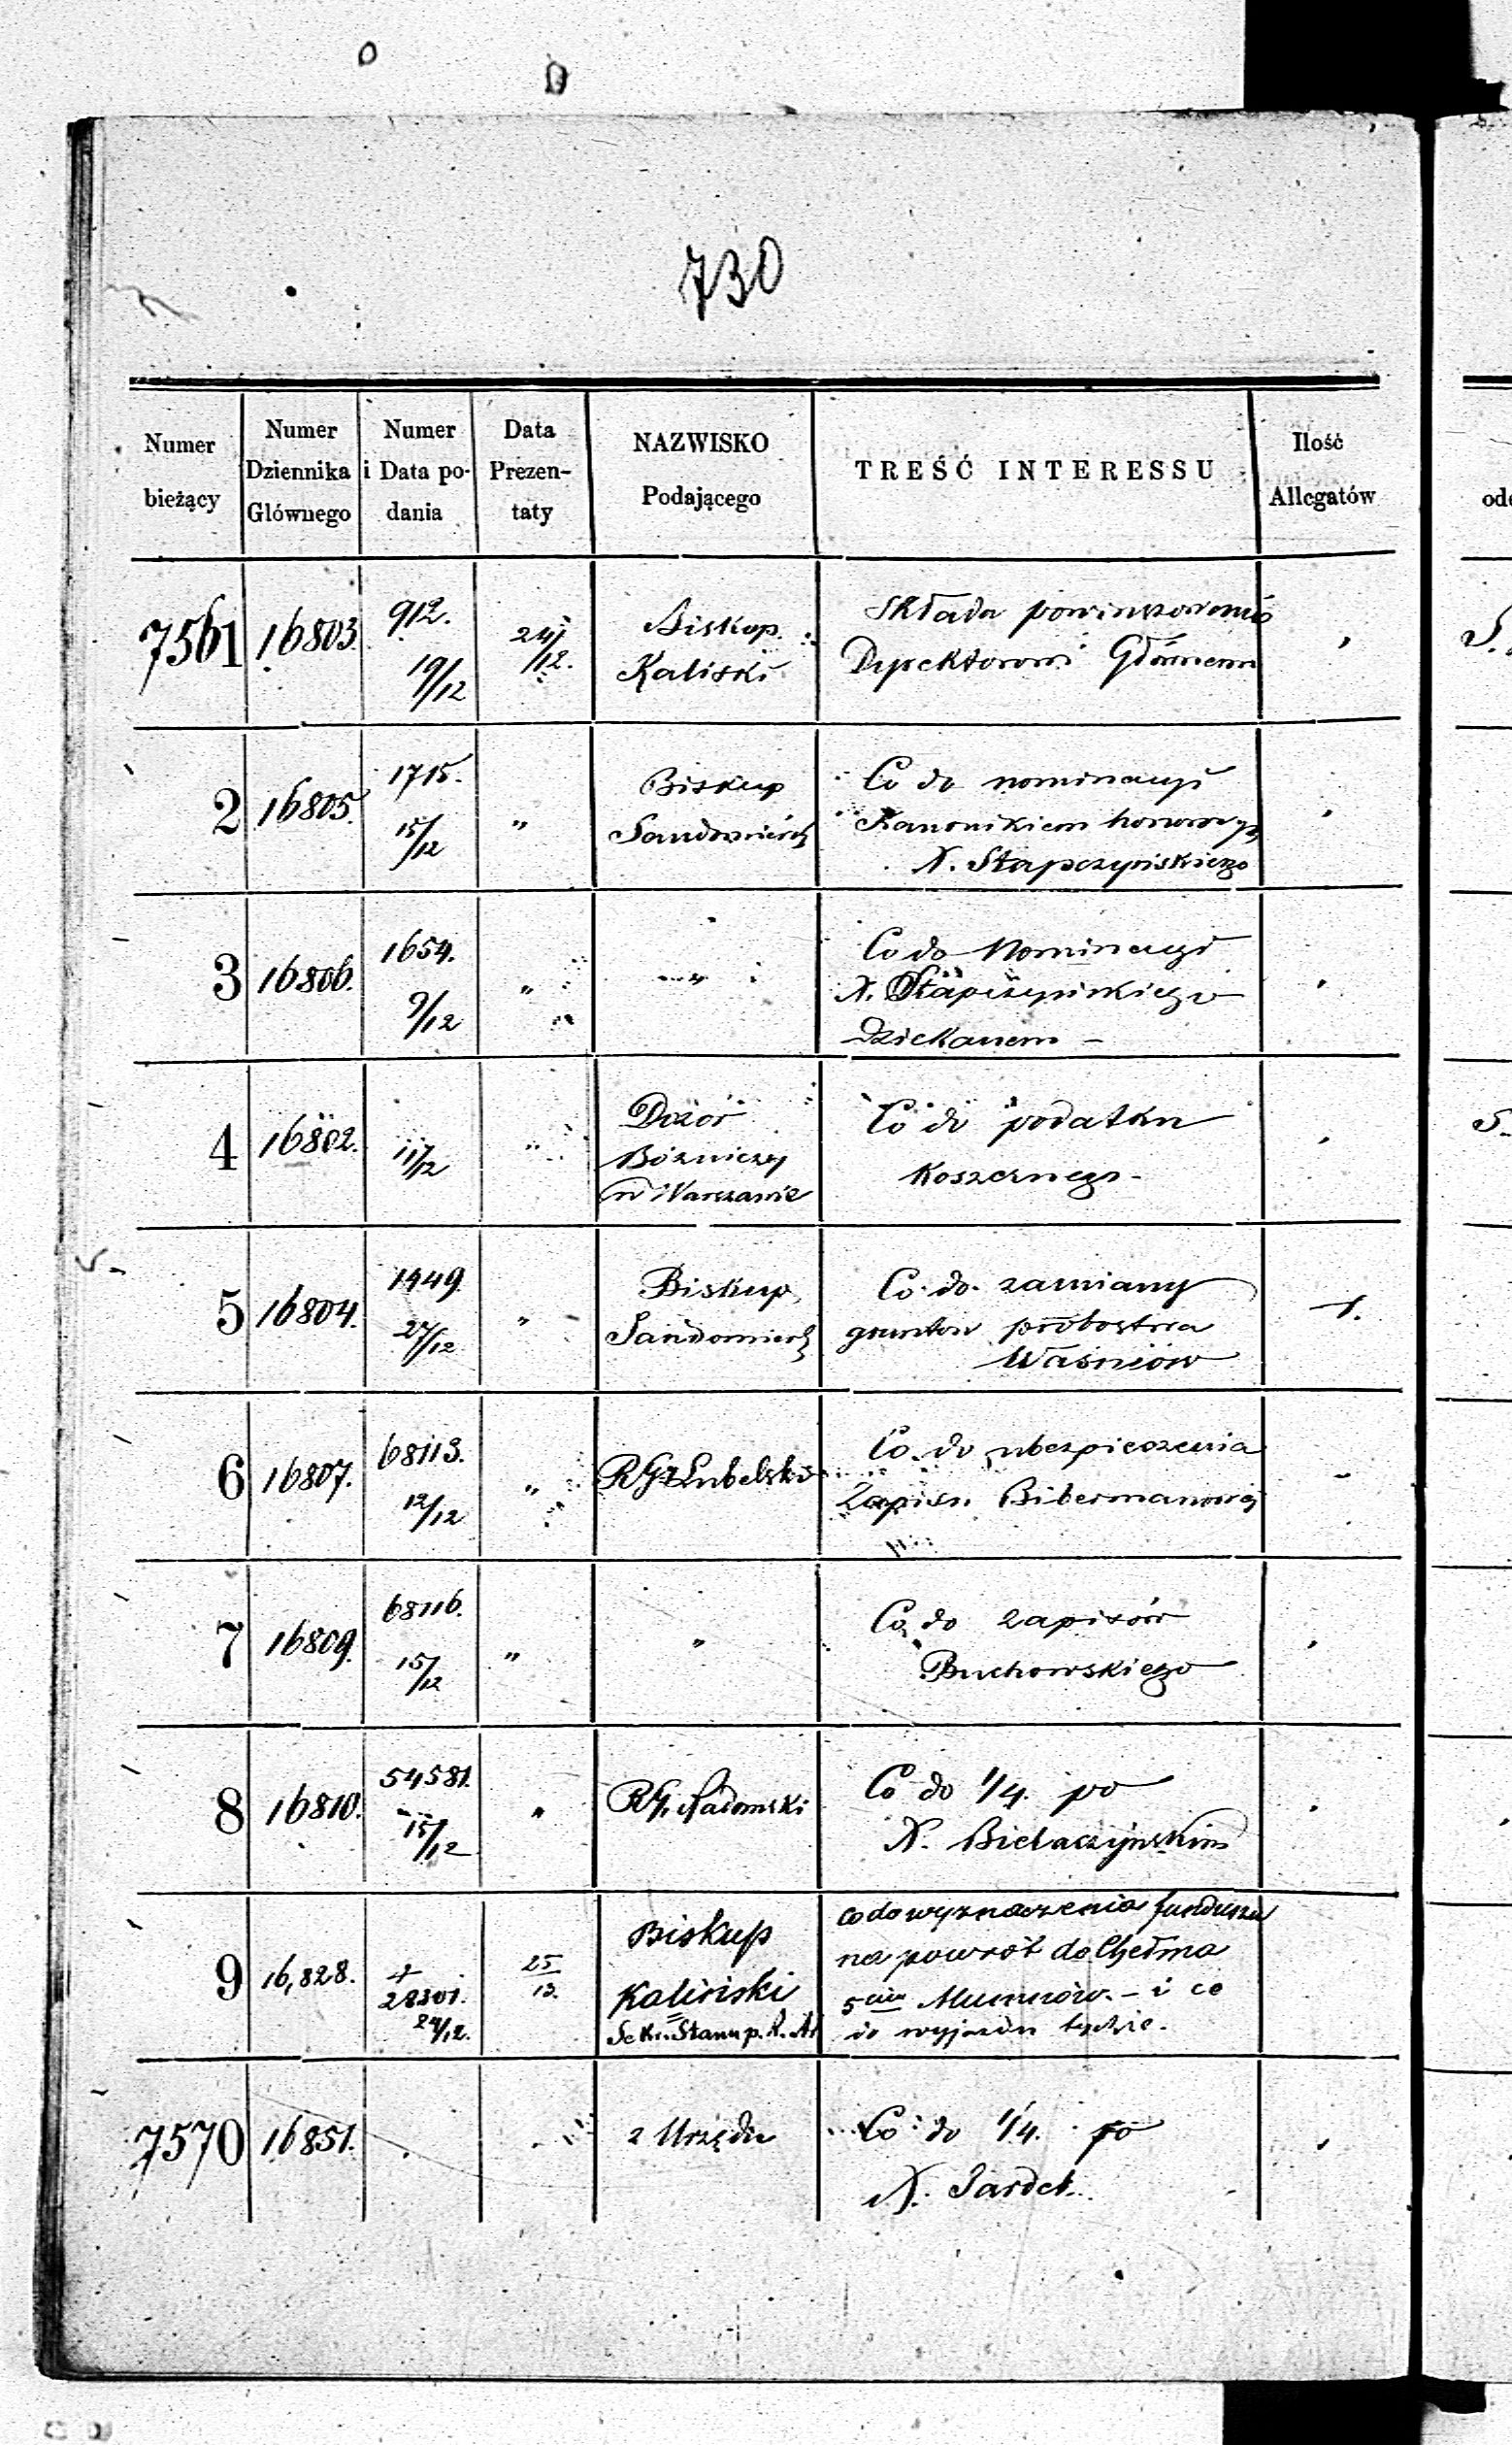 730
Numer bieżący
Numer Dziennika Głównego
Numer i Data podania
Data Prezentaty
NAZWISKO Podającego
TREŚĆ INTERESSU
Ilość Allegatów
7561 16803. 912. 19/12 24/12. Biskup Kaliski
Składa powinszowanie
Dyrektorowi Głównemu
2 16805. 1715. 15/12 " Biskup Sandomiersk
Co do nominacyi
Kanonikiem honorowym
X. Stapczyńskiego
3 16806. 1654. 9/12 " "
Co do Nominacyi
X. Stapczyńskiego
Dziekanem -
4 16802. 11/12 " Dozór Bożniczy w Warszawie
Co do podatku
Koszernego -
5 16804. 1449. 27/12 " Biskup Sandomiersk
Co do zamiany
gruntów probostwa
Waśniów
1.
6 16807. 68113. 12/12 " RG Lubelski
Co do ubezpieczenia
Zapisu Bibermanowej
7 16809. 68116. 15/12 " "
Co do zapisów
Buchowskiego
8 16810. 54581. 15/12 " RG. Radomski
Co do 1/4. po
X. Bielaczyńskim
9 16,828. 28301. 24/12. 25/12. Biskup Kaliński
Sekr. Stanu p. K.
co do wyznaczenia funduszu
na powrót do Chełma
5ciu Alumnów. - i co
do wyjazdu tychże.
7570 16851. z Urzędu
Co do 1/4. po
X. Jardel.